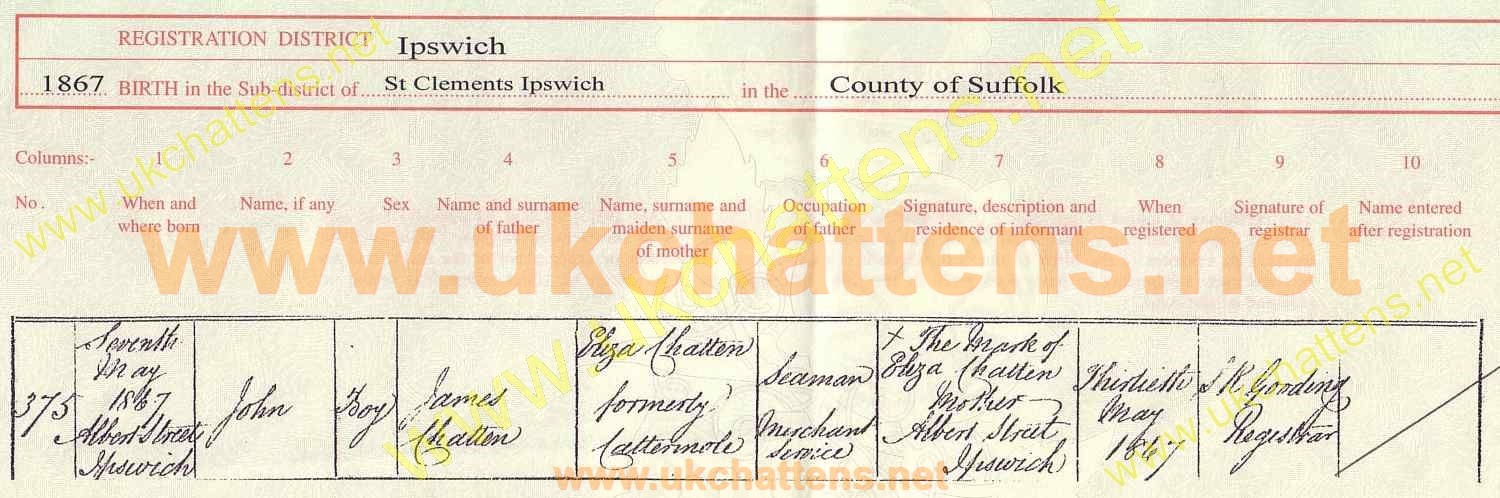 REGISTRATION DISTRICT Ipswich
1867 BIRTH in the Sub-district of St Clements Ipswich in the County of Suffolk
Columns:- 1 2 3 4 5 6 7 8 9 10
No. When and where born Name, if any Sex Name and surname of father Name, surname and maiden surname of mother Occupation of father Signature, description and residence of informant When registered Signature of registrar Name entered after registration
375
Seventh
May
1867
Albert Street
Ipswich
John
Boy
James
Chatten
Eliza Chatten
formerly
Cattermole
Seaman
Merchant
Service
X The Mark of
Eliza Chatten
Mother
Albert Street
Ipswich
Thirtieth
May
1867
S R Gooding
Registrar
www.ukchattens.net
www.ukchattens.net
www.ukchattens.net
www.ukchattens.net
www.ukchattens.net
www.ukchattens.net